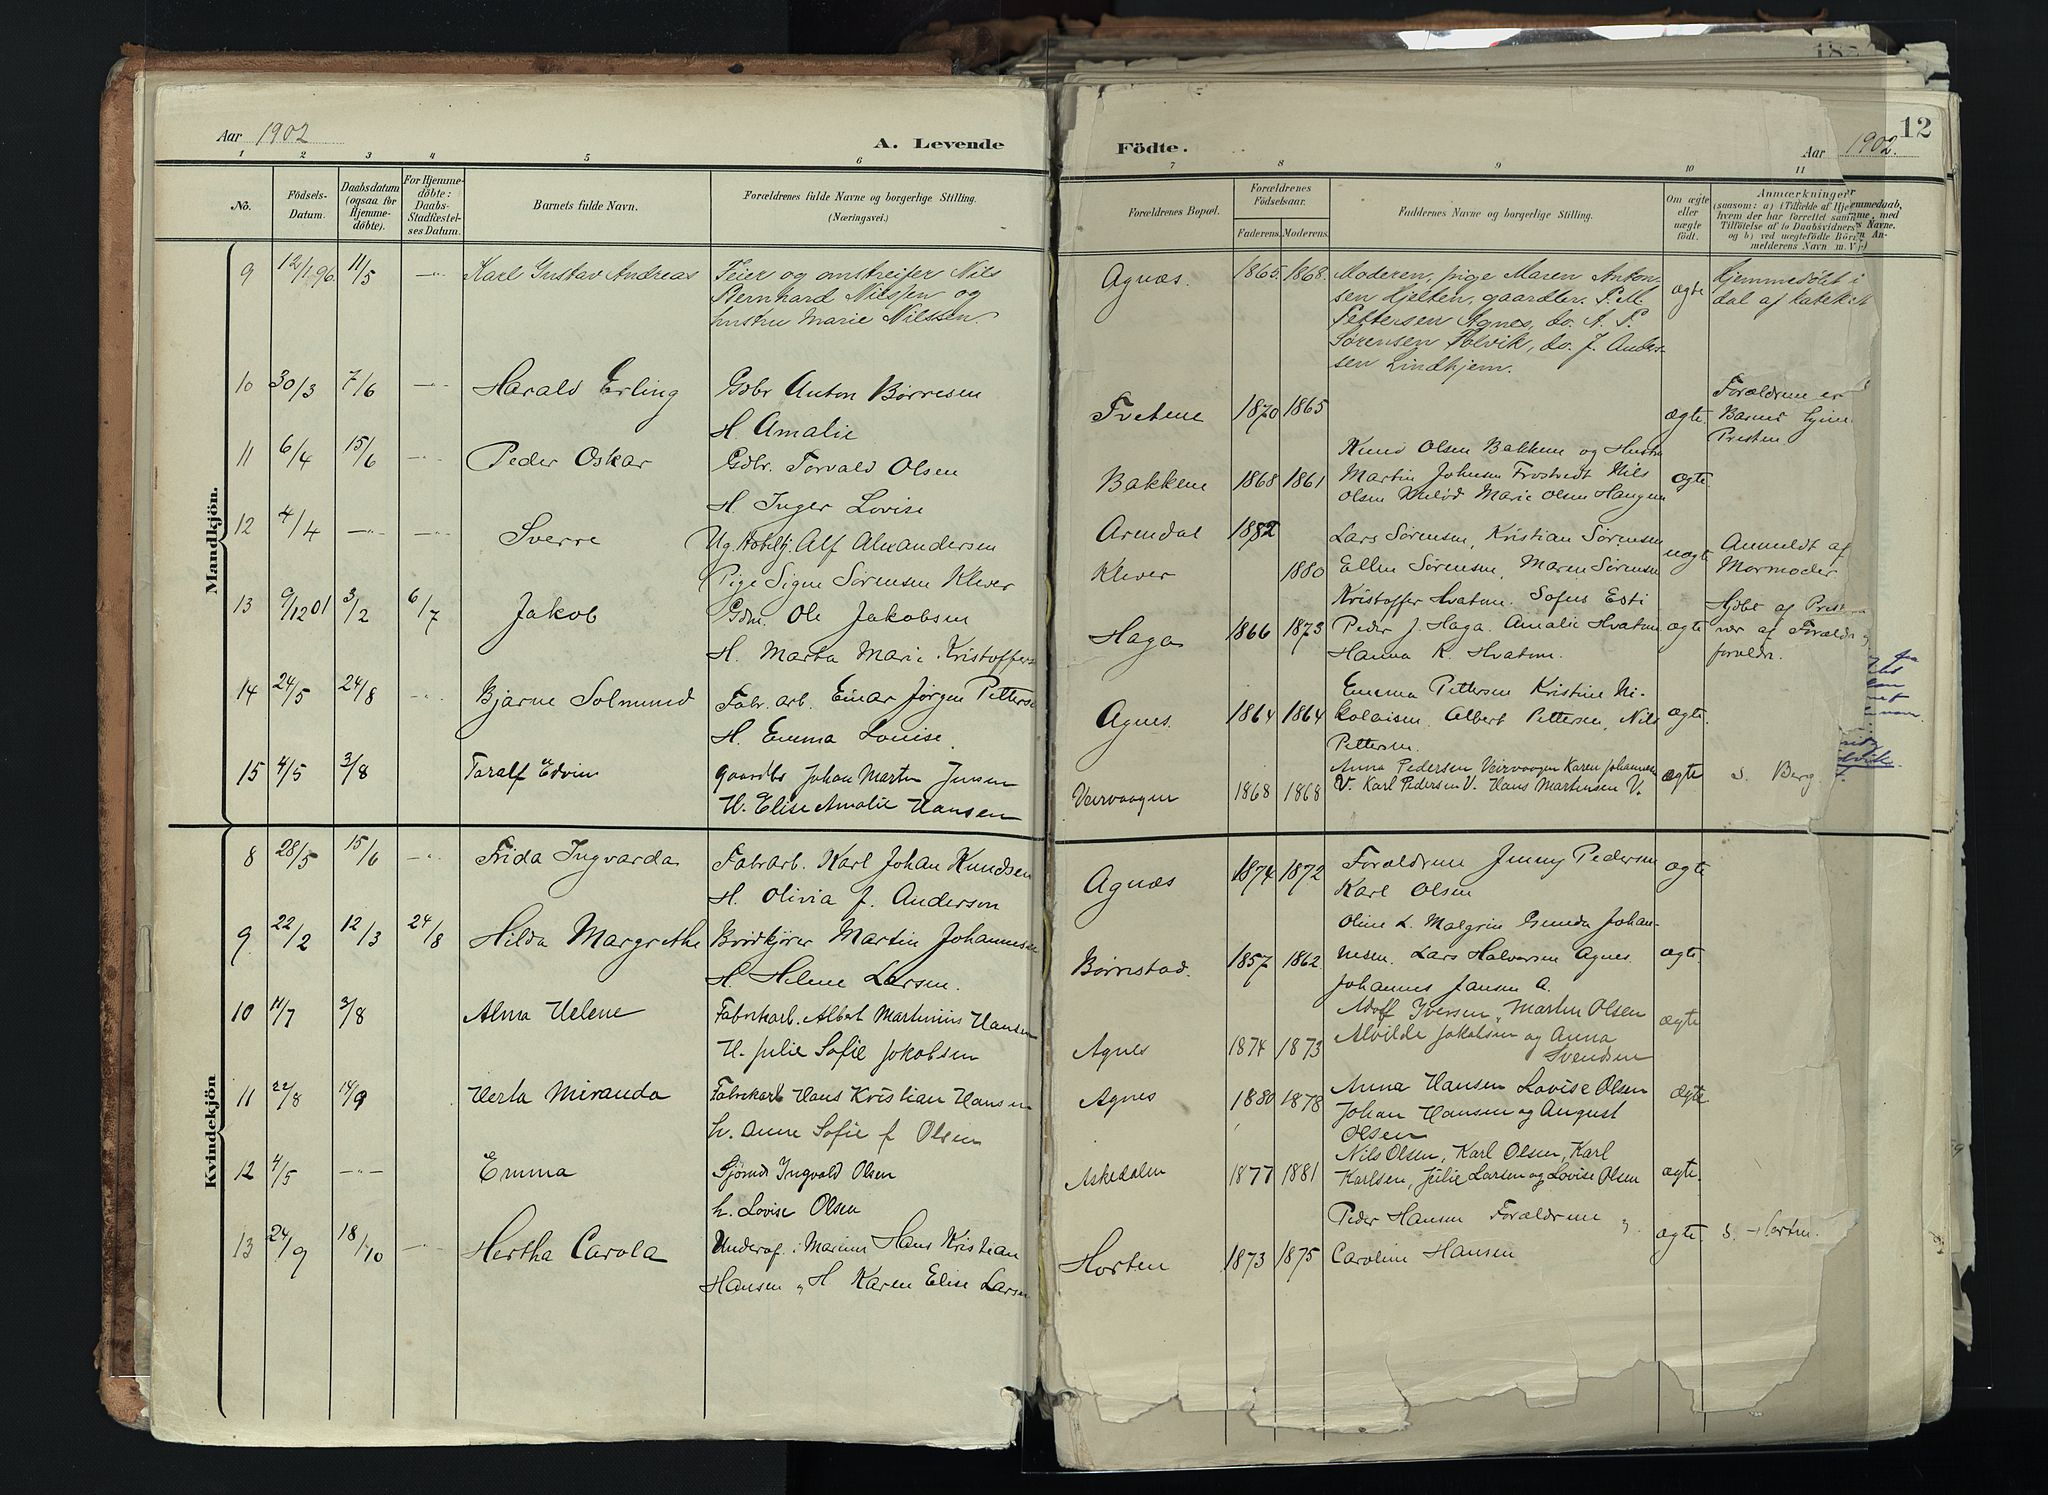 Aar 1902
A. Levende
1 2 3 4 5 6
No.
Födsels-
Datum.
Daabsdatum
(ogsaa for
Hjemme-
döbte).
For Hjemme-
döbte:
Daabs-
Stadfæstel-
ses Datum.
Barnets fulde Navn.
Forældrenes fulde Navne og borgerlige Stilling.
(Næringsvei.)
Mandkjön.
9 12/1 96. 11/5 —"— Karl Gustav Andreas Feier og omstreifer Nils
Bernhard Nilssen og
hustru Marie Nilssen.
10 30/3 7/6 —"— Harald Erling Gdbr Anton Börresen
H. Amalie
11 6/4 15/6 —"— Peder Oskar Gdbr. Torvald Olsen
H Inger Lovise
12 4/4 —"— —"— Sverre Ug. Alf Alexandersen
Pige Signe Sørensen Klever
13 9/12 01 3/2 6/7 Jakob Gdm. Ole Jakobsen
H. Marta Marie Kristoffers
14 24/5 24/8 —"— Bjarne Solmund Fabr. arb. Einar Jørgen Petters
H. Emma Louise
15 4/5 3/8 Toralf Edvin gaardbr Johan Martin Jensen
H. Elise Amalie Hansen
Kvindekjön
8 28/5 15/6 —"— Frida Ingvarda Fabrarb. Karl Johan Knudsen
H. Olivia f. Anderson
9 22/2 12/3 24/8 Hilda Margrethe Martin Johannesen
H. Helene Larsen.
10 11/7 3/8 Alma Helene Fabrikarb. Albert Martinius Hansen
H. Julie Sofie Jakobsen
11 22/8 14/9 Herta Miranda Fabrikarb Hans Kristian Hansen
h. Anne Sofie f Olsen
12 4/5 —"— Emma Sjömd Ingvald Olsen
h. Lovise Olsen
13 24/9 18/10 —"— Hertha Carola Underof. i Marinen Hans Kristian
Hansen og H Karen Elise Larsen
Födte.
Aar 1902.
12
7 8 9 10 11
Forældrenes Bopæl.
Forældrenes
Födselsaar.
Faderens. Moderens.
Faddernes Navne og borgerlige Stilling.
Om ægte
eller
uægte
födt.
Anmærkninger
(saasom: a) i Tilfælde af Hjemmedaab,
hvem der har forrettet samme, med
Tilföielse af to Daabsvidners Navne.
og b) ved uægtefödte Börn An-
melderens Navn m. V.)
Agnæs. 1865. 1868. Moderen, pige Maren Anton-
sen Hjelten, gaardbr. P. M.
Pettersen Agnes, do. A. P.
Sørensen Solvik, do. J. Ander-
sen Lindhjem.
ægte Hjemmedøbt i
dal af kateket
Tvetene 1870 1865 ægte. Forældrene er
Barnet hjem
Presten
Knud Olsen Bakkene og Hustru
Bakkene 1868 1861 Martin Johnsen Trostvedt Nils
Olsen Marie Olsen Haugen
ægte.
Arendal 1882 Lars Sørensen, Kristian Sørensen
Klever 1880 Ellen Sørensen, Maren Sørensen
uægte Anmeldt af
Mormoder
Kristoffer Hvatum. Sofus Esti
Haga 1866 1873 Peder J. Haga. Amalie Hvatum
Hanna K. Hvatum.
ægte Hjdbt af Presten
nær af Forældr
foraldr.
Emma Pettersen Kristine Ni-
Agnes. 1864 1864 kolaisen. Albert Pettersen, Nils
Pettersen.
ægte.
Anna Pedersen Veirvaagen Karen Johannesen
Veirvaagen 1868 1868 V. Karl Pedersen V. Hans Martinsen V.
ægte s. Berg.
Agnæs 1874 1872 Forældrene Jenny Pedersen
Karl Olsen
ægte
Oline L. Malgrin Gunda Johan-
Børrestad. 1857 1862 nesen. Lars Halvorsen Agnes.
Johannes Jansen A.
ægte.
Adolf Iversen, Martin Olsen
Agnes 1874 1873 Alvilde Jakobsen og Anna
Svendsen
ægte
Agnes 1880 1878 Anna Hansen Lovise Olsen
Johan Hansen og August
Olsen
ægte
Nils Olsen, Karl Olsen, Karl
Askedalen 1877 1881 Karlsen, Julie Larsen og Lovise Olsen
ægte.
Peder Hansen Forældrene og
Horten 1873 1875 Caroline Hansen
ægte. s. Horten.